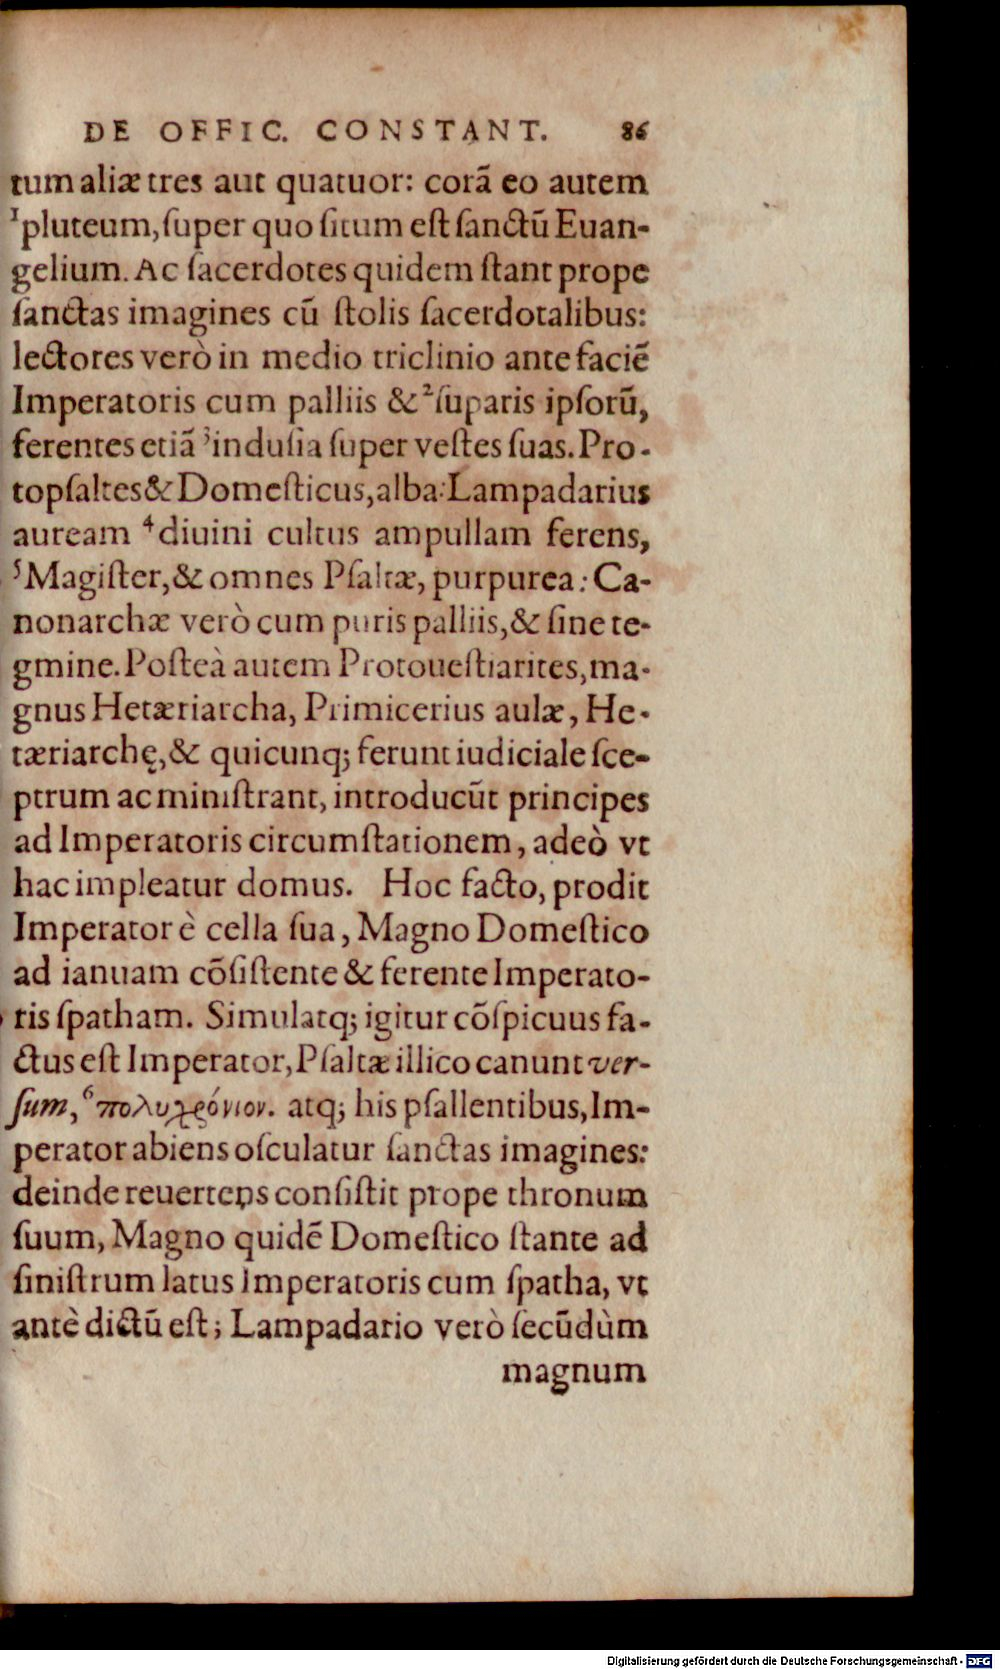 DE OFFIC. CONSTANT. 86
tum aliæ tres aut quatuor: corã eo autem
¹pluteum, ſuper quo ſitum eſt ſanctũ Euan-
gelium. Ac ſacerdotes quidem ſtant prope
ſanctas imagines cũ ſtolis ſacerdotalibus:
lectores verò in medio triclinio ante faciẽ
Imperatoris cum palliis & ²ſuparis ipſorũ,
ferentes etiã ³induſia ſuper veſtes ſuas. Pro-
topſaltes & Domeſticus, alba: Lampadarius
auream ⁴diuini cultus ampullam ferens,
⁵Magiſter, & omnes Pſaltæ, purpurea: Ca-
nonarchæ verò cum puris palliis, & ſine te-
gmine. Poſteà autem Protoueſtiarites, ma-
gnus Hetæriarcha, Primicerius aulæ, He-
tæriarchę, & quicunq; ferunt iudiciale ſce-
ptrum ac miniſtrant, introducũt principes
ad Imperatoris circumſtationem, adeò vt
hac impleatur domus. Hoc facto, prodit
Imperator è cella ſua, Magno Domeſtico
ad ianuam cõſiſtente & ferente Imperato-
ris ſpatham. Simulatq; igitur cõſpicuus fa-
ctus eſt Imperator, Pſaltæ illico canunt ver-
ſum, ⁶πολυχρόνιον. atq; his pſallentibus, Im-
perator abiens oſculatur ſanctas imagines:
deinde reuertens conſiſtit prope thronum
ſuum, Magno quidẽ Domeſtico ſtante ad
ſiniſtrum latus Imperatoris cum ſpatha, vt
antè dictũ eſt; Lampadario verò ſecũdùm
magnum
Digitalisierung gefördert durch die Deutsche Forschungsgemeinschaft - DFG